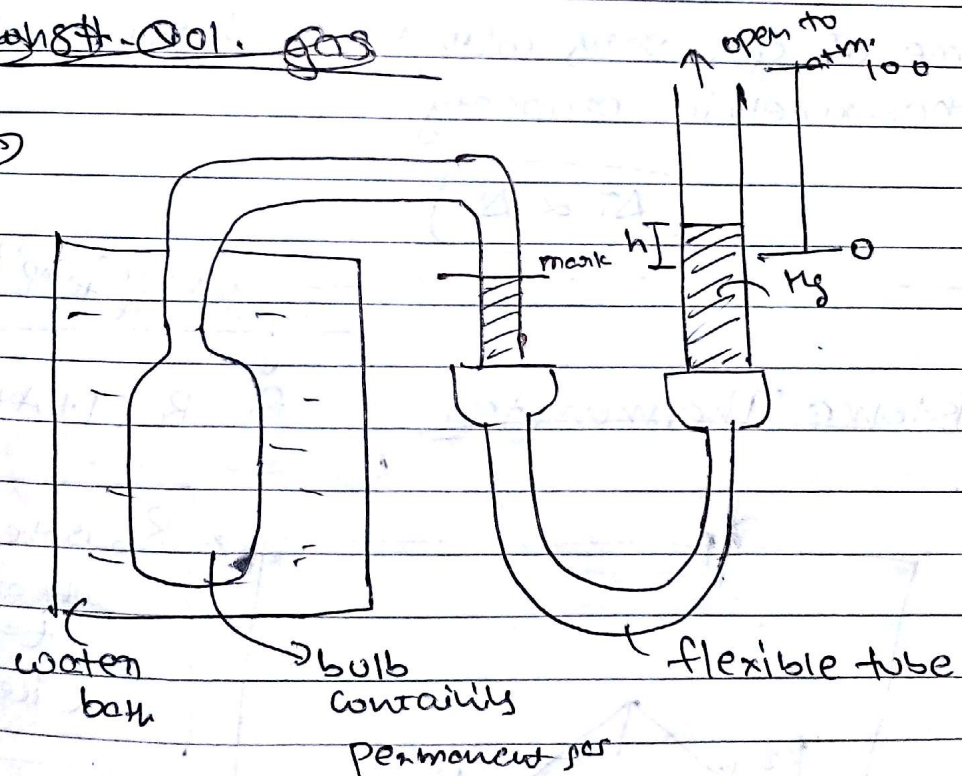 const-Vol. gas
open to
atm.
100
h
mark
0
Hg
water
bath
bulb
containing
permanent gas
flexible tube